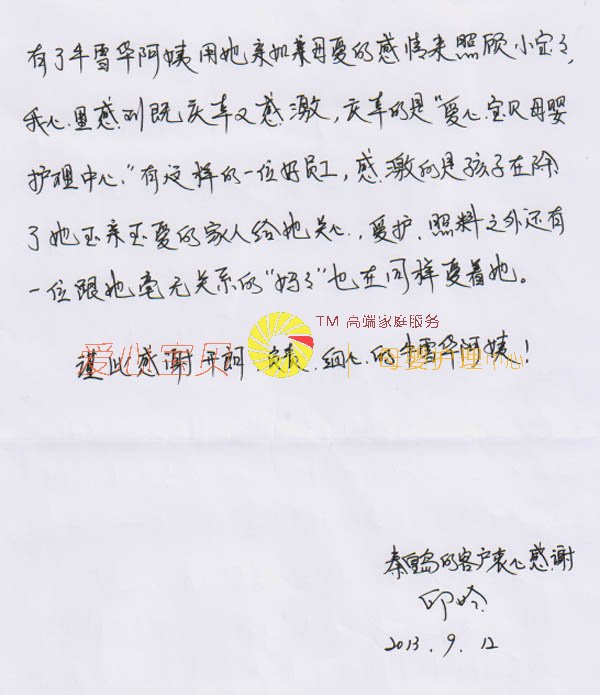 有了牛雪华阿姨用她亲如亲母爱的感情来照顾小宝宝,
我心里感到既庆幸又感激,庆幸的是"爱心宝贝母婴
护理中心"有这样的一位好员工,感激的是孩子在除
了她至亲至爱的家人给她关心、爱护、照料之外还有
一位跟她毫无关系的"妈妈"也在同样爱着她。
TM 高端家庭服务
爱心宝贝 母婴护理中心
谨此感谢开朗、负责、细心的牛雪华阿姨!
秦皇岛的客户衷心感谢
2013.9.12